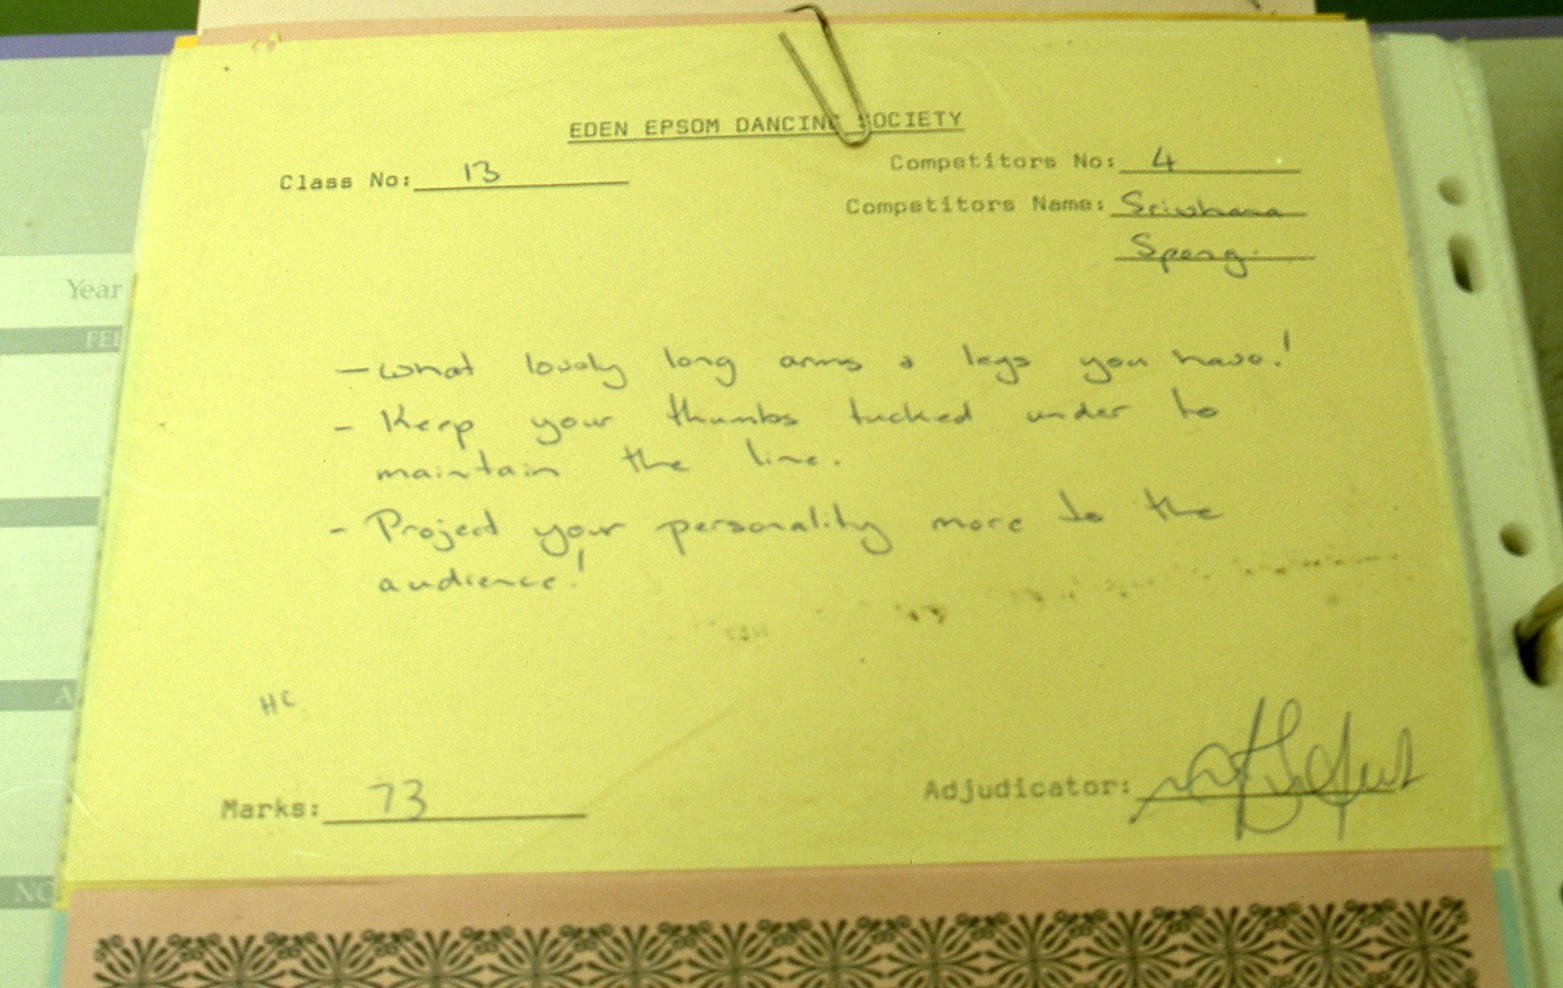 EDEN EPSOM DANCING SOCIETY
Class No: 13
Competitors No: 4
Competitors Name: Sriwhana
Spong.
- what lovely long arms & legs you have!
- Keep your thumbs tucked under to
maintain the line.
- Project your personality more to the
audience!
HC
Marks: 73
Adjudicator:
Year
FEB
A
NO